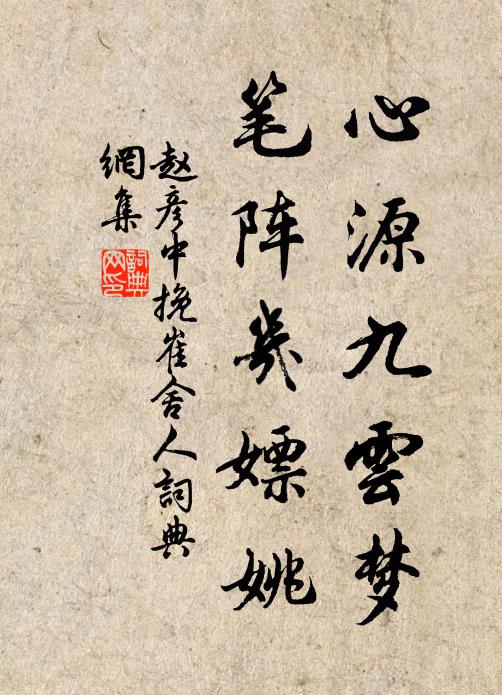 心源九雲梦
笔阵几嫖姚
赵彦中挽崔舍人詞典
網集
詞典
网印